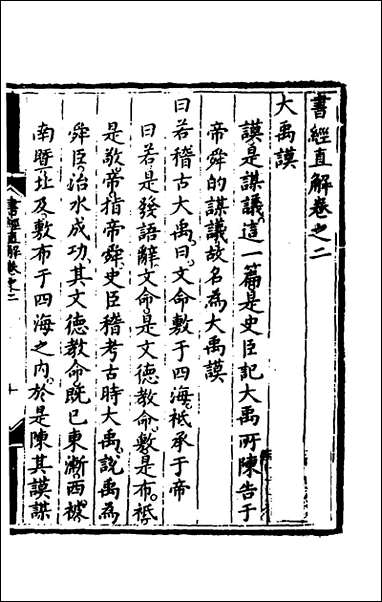 書經直解卷之二
大禹謨
謨是謀議這一篇是史臣記大禹所陳告于
帝舜的謀議故名為大禹謨
曰若稽古大禹曰文命敷于四海祗承于帝
曰若是發語辭文命是文德教命敷是布祗
是敬帝指帝舜史臣稽考古時大禹說禹為
舜臣治水成功其文德教命既已東漸西被
南暨北及敷布于四海之內於是陳其謨謀
書經直解卷之二